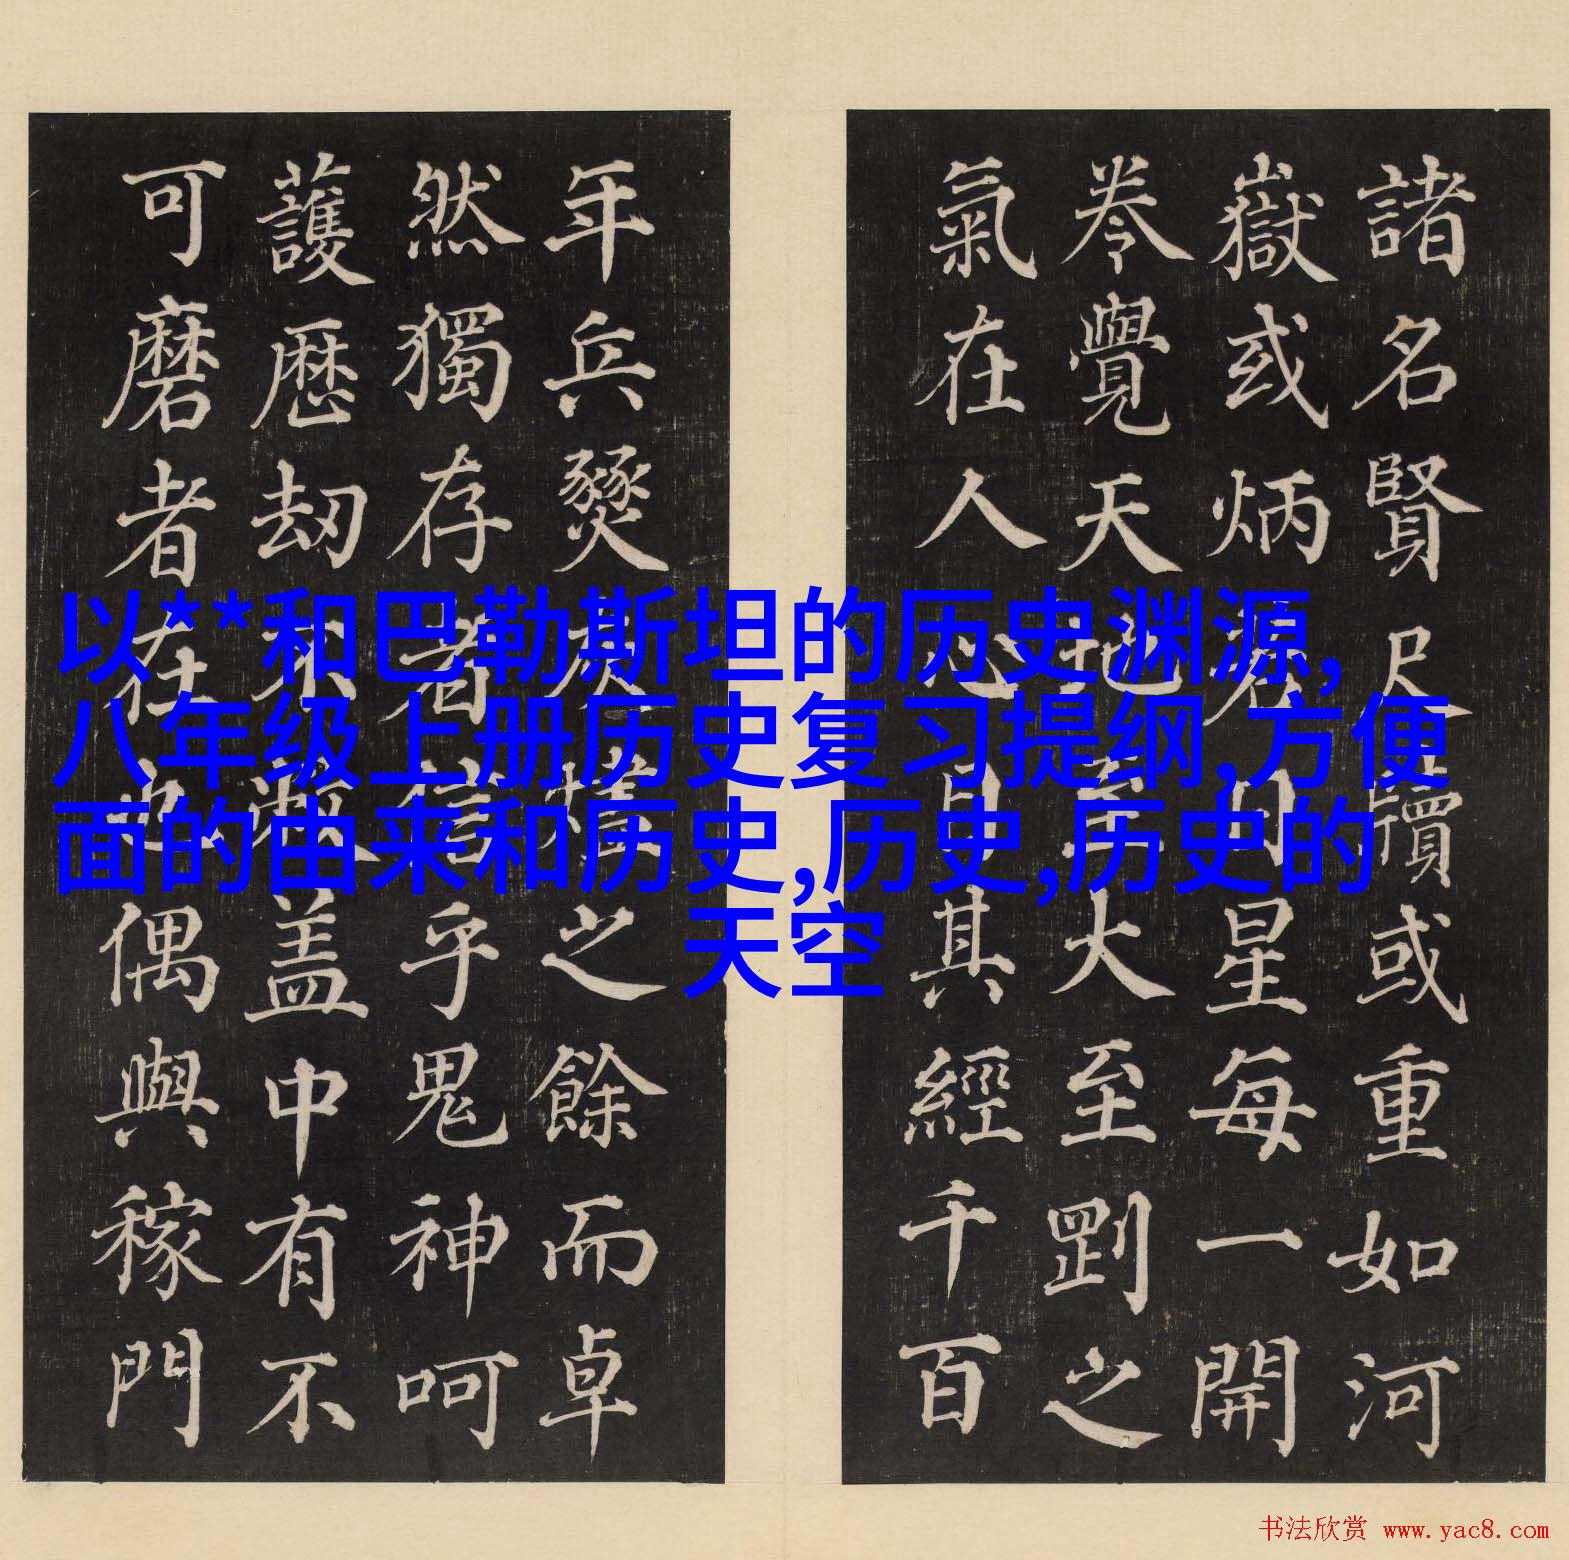 諸名賢尺牘或重如河
嶽或炳若日星每一開
卷覺天地至大至剛之
氣在人心目其經千百
年兵燹灰燼之餘而卓
然獨存者信乎鬼神呵
護歷刼不敝盖中有不
可磨者在也偶與稼門
以**和巴勒斯坦的历史渊源,
八年级上册历史复习提纲,方便
面的由来和历史,历史,历史的
天空
书法欣赏 www.yac8.com